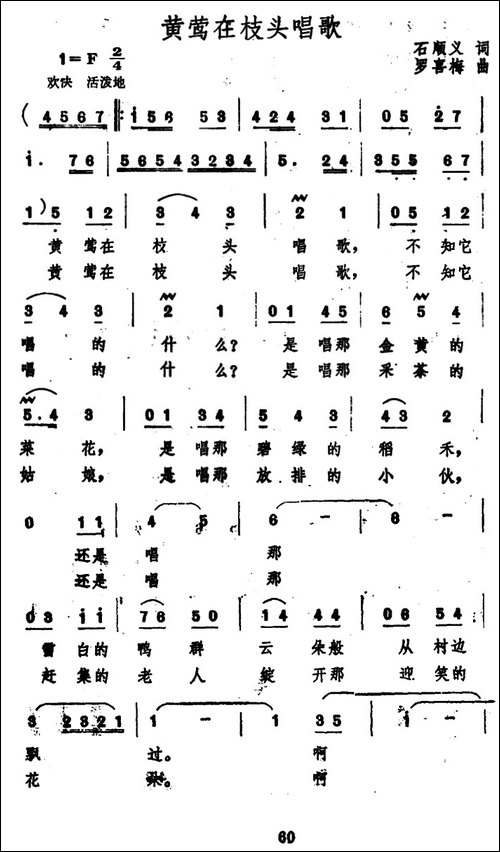 黄莺在枝头唱歌
1=F 2/4
石顺义 词
罗喜梅 曲
欢快 活泼地
( 4 5 6 7 ‖: i 5 6 5 3 | 4 2 4 3 1 | 0 5 2 7 |
i . 7 6 | 5 6 5 4 3 2 3 4 | 5 . 2 4 | 3 5 5 6 7 |
1 ) 5 1 2 | 3 4 3 | 2 1 | 0 5 1 2 |
黄 莺在 枝 头 唱 歌, 不 知它
黄 莺在 枝 头 唱 歌, 不 知它
3 4 3 | 2 1 | 0 1 4 5 | 6 5 4 |
唱 的 什 么? 是 唱那 金 黄 的
唱 的 什 么? 是 唱那 采 茶 的
5 . 4 3 | 0 1 3 4 | 5 4 3 | 4 3 2 |
菜 花, 是 唱那 碧 绿 的 稻 禾,
姑 娘, 是 唱那 放 排 的 小 伙,
0 1 1 | 4 5 | 6 – | 6 – |
还是 唱 那
还是 唱 那
0 3 i i | 7 6 5 0 | 1 4 4 4 | 0 6 5 4 |
雪 白的 鸭 群 云 朵般 从 村边
赶 集的 老 人 绽 开那 迎 笑的
3 2 3 2 1 | 1 – | 1 3 5 | i – |
飘 过。 啊
花 朵。 啊
60